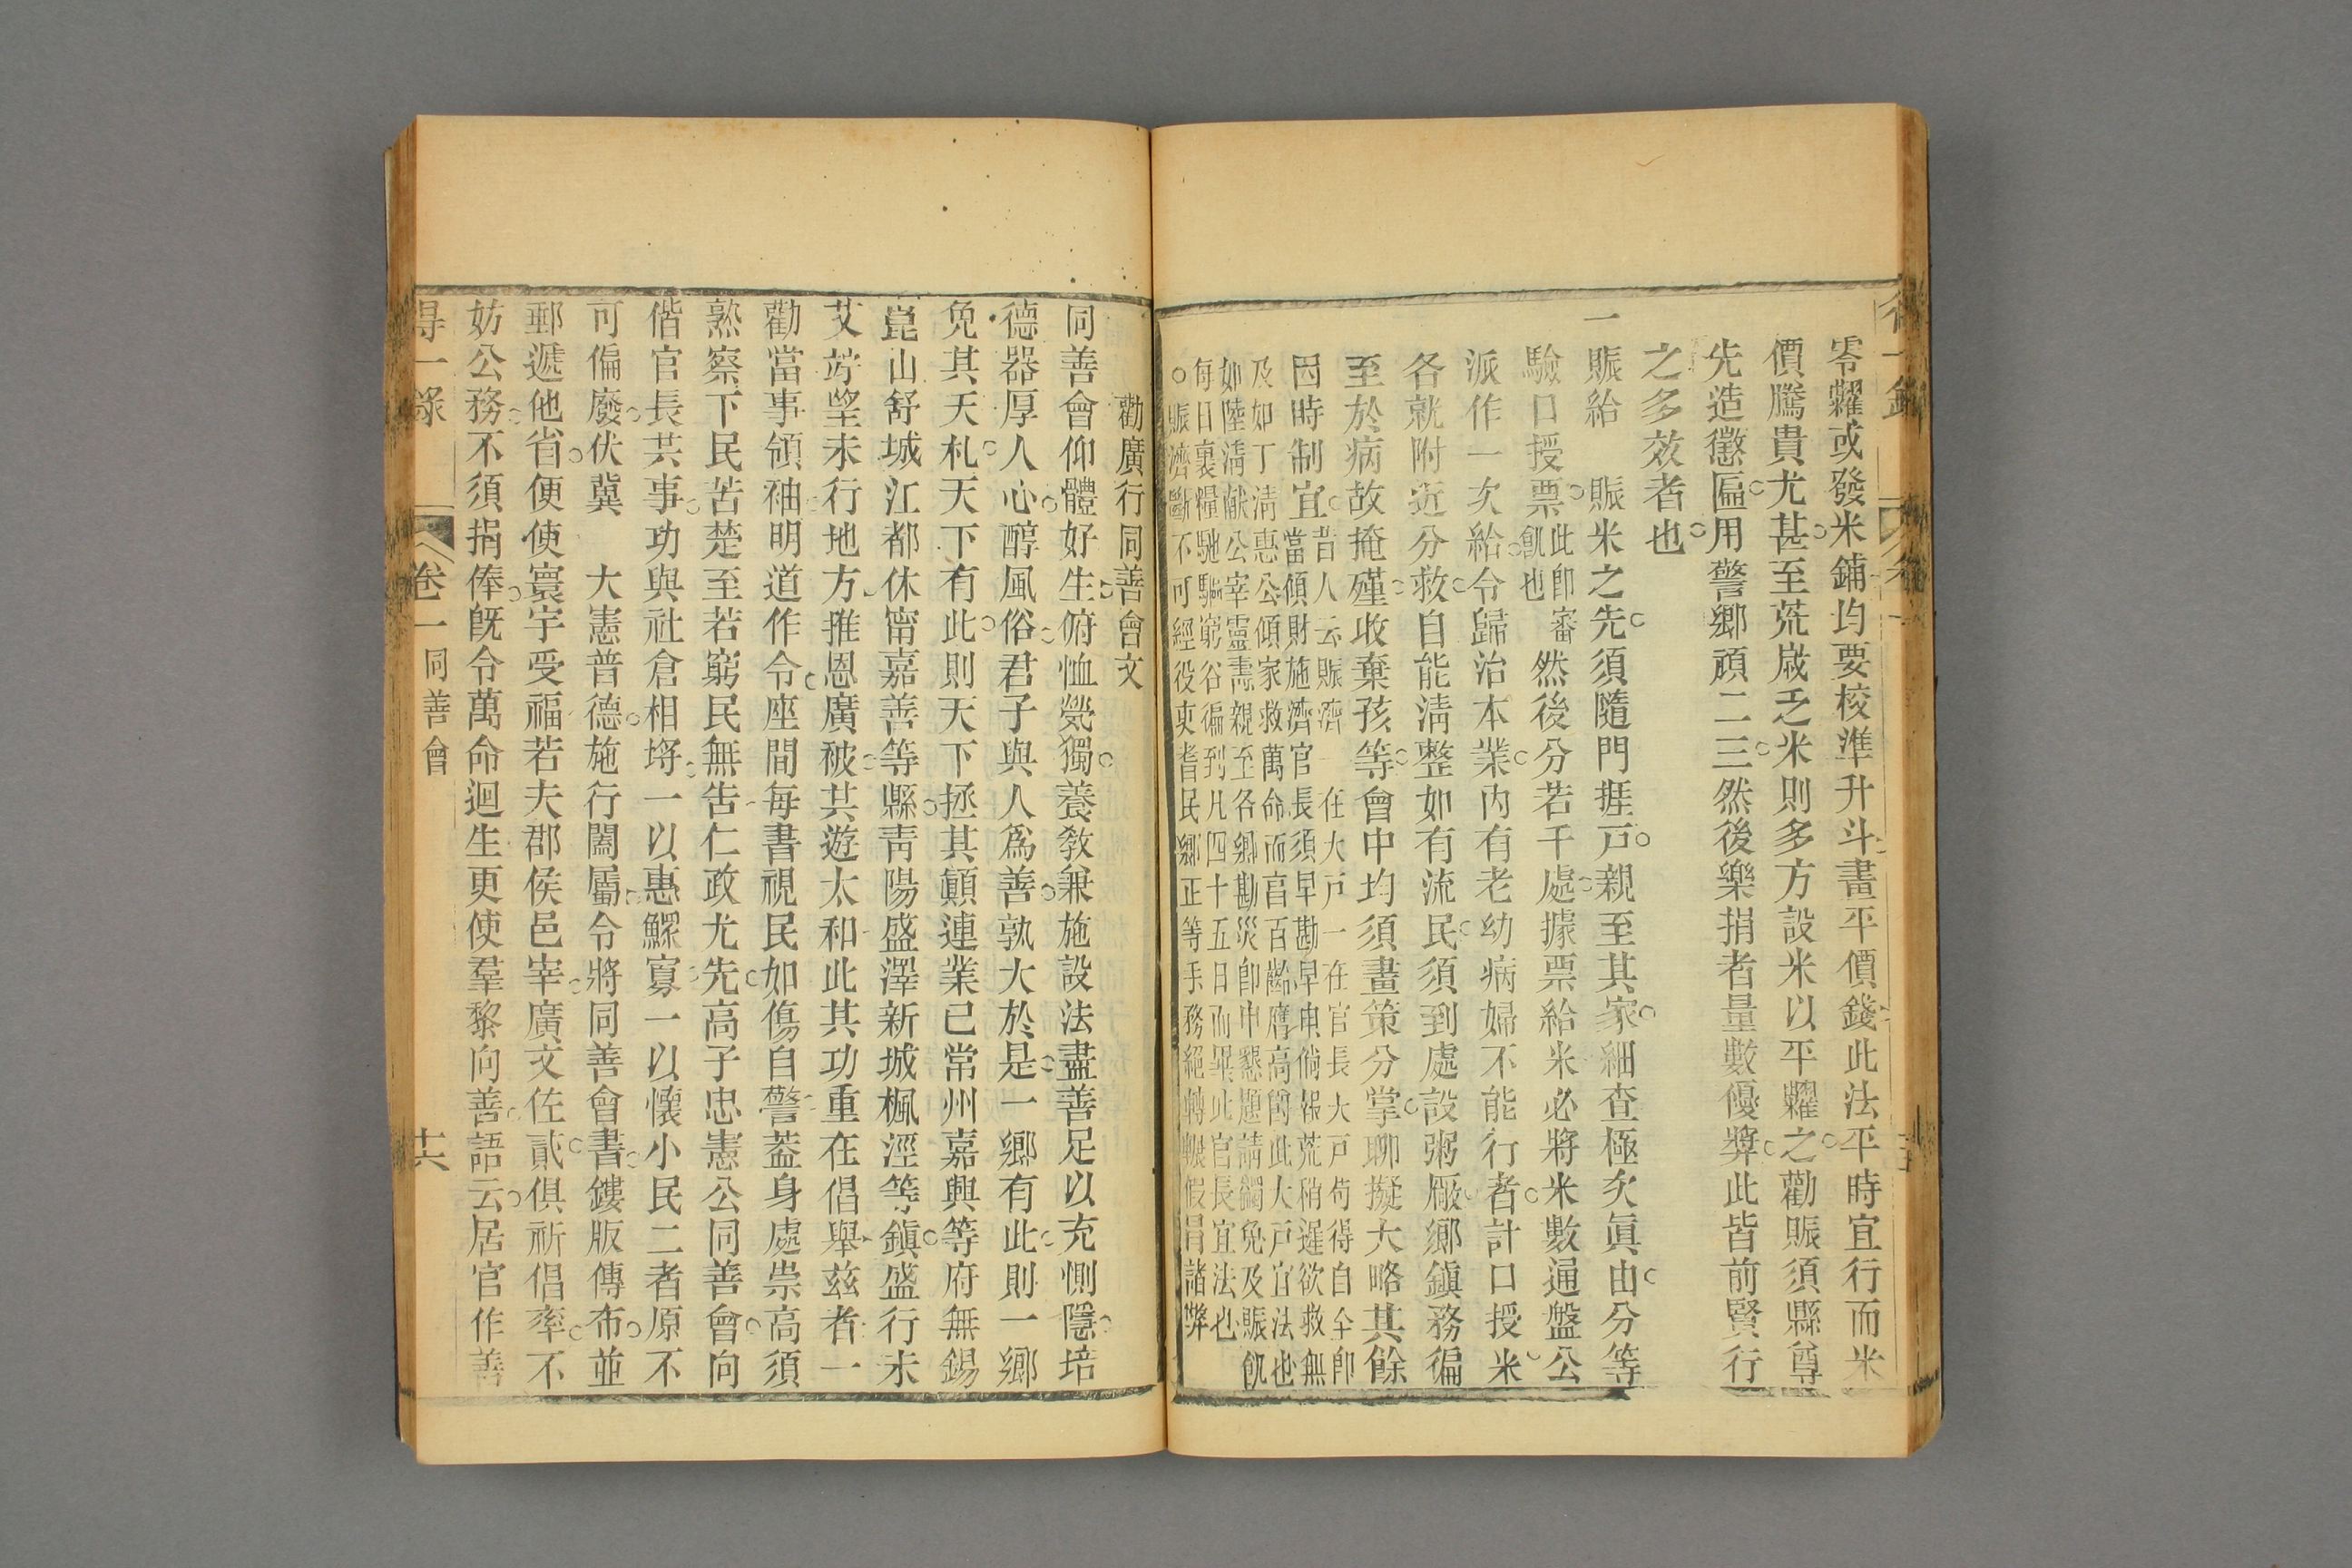 零糶或發米鋪均要校準升斗畫平價錢此法平時宜行而米
價騰貴尤甚至荒歲乏米則多方設米以平糶之勸賑須縣尊
先造懲匾用警鄉頑二三然後樂捐者量數優獎此皆前賢行
之多效者也
一賑給　賑米之先須隨門捱戸親至其家細查極欠眞由分等
驗口授票此卽審飢也然後分若干處據票給米必將米數通盤公
派作一次給令歸治本業內有老幼病婦不能行者計口授米
各就附近分救自能淸整如有流民須到處設粥廠鄉鎭務徧
至於病故掩殣收棄孩等會中均須畫策分掌聊擬大略其餘
因時制宜昔人云賑濟一在大戸一在官長大戸苟得自全卽
當傾財施濟官長須早勘早申倘報荒稍遲欲救無
及如丁淸惠公傾家救萬命而享百齡膺高閎此大戸宜法也
如陸淸獻公宰靈壽親至各鄉勘災卽申懇題請蠲免及賑飢
每日裹糧馳驅窮谷徧到凡四十五日而畢此官長宜法也
○賑濟斷不可經役吏耆民鄉正等手務絕轉輾假冒諸弊
勸廣行同善會文
同善會仰體好生俯恤煢獨養敎兼施設法盡善足以充惻隱培
德器厚人心醇風俗君子與人爲善孰大於是一鄉有此則一鄉
免其夭札天下有此則天下拯其顚連業已常州嘉興等府無錫
崑山舒城江都休甯嘉善等縣靑陽盛澤新城楓涇等鎭盛行未
艾竚望未行地方推恩廣被共遊太和此其功重在倡舉茲者一
勸當事領袖明道作令座間每書視民如傷自警葢身處崇高須
熟察下民苦楚至若窮民無告仁政尤先高子忠憲公同善會向
偕官長共事功與社倉相埒一以惠鰥寡一以懷小民二者原不
可偏廢伏冀　大憲普德施行闔屬令將同善會書鏤版傳布並
郵遞他省便使寰宇受福若夫郡侯邑宰廣文佐貳俱祈倡率不
妨公務不須捐俸旣令萬命迴生更使羣黎向善語云居官作善
得一錄　卷一同善會　十六